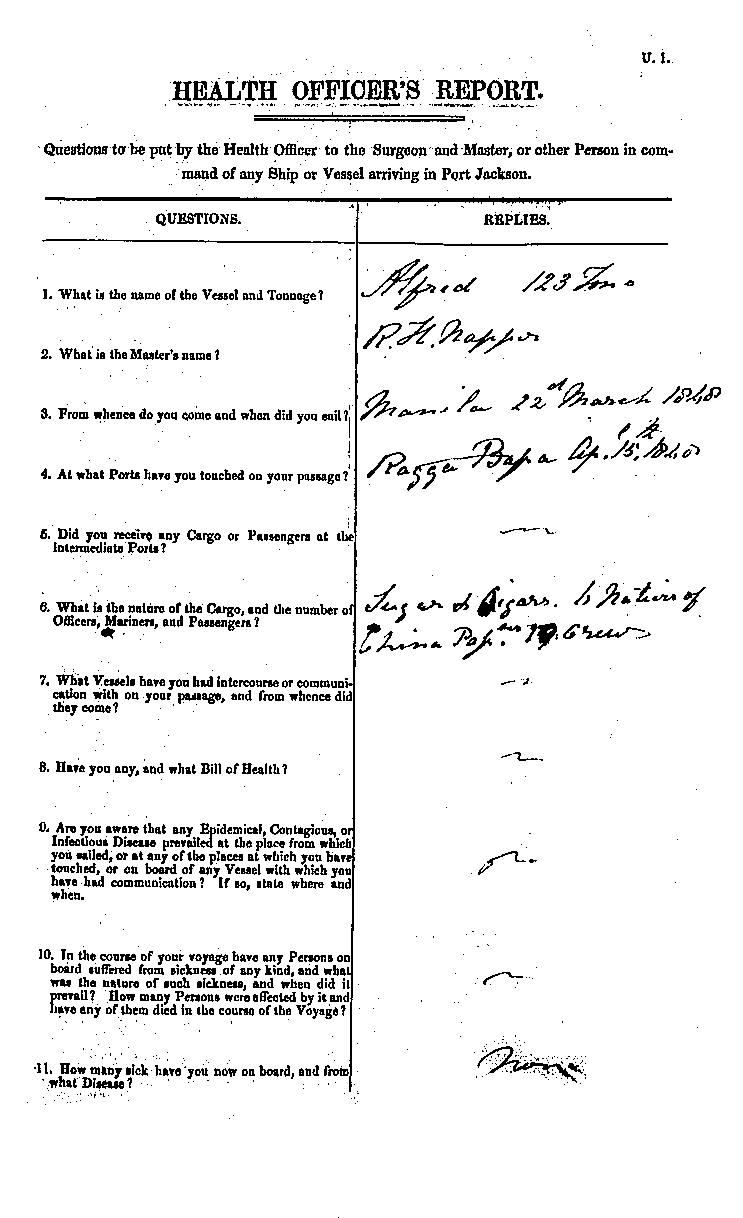 U. 1.
HEALTH OFFICER'S REPORT.
Questions to be put by the Health Officer to the Surgeon and Master, or other Person in com-
mand of any Ship or Vessel arriving in Port Jackson.
QUESTIONS.
REPLIES.
1. What is the name of the Vessel and Tonnage?
Alfred 123 Tons
2. What is the Master's name?
R. H. Napper
3. From whence do you come and when did you sail?
Manila 22d March 1848
4. At what Ports have you touched on your passage?
Ragga Bapa Ap. 15th 1848
5. Did you receive any Cargo or Passengers at the
Intermediate Ports?
6. What is the nature of the Cargo, and the number of
Officers, Mariners, and Passengers?
Sugar & Cigars. Natives of
China Crew
7. What Vessels have you had intercourse or communi-
cation with on your passage, and from whence did
they come?
8. Have you any, and what Bill of Health?
9. Are you aware that any Epidemical, Contagious, or
Infectious Disease prevailed at the place from which
you sailed, or at any of the places at which you have
touched, or on board of any Vessel with which you
have had communication? If so, state where and
when.
10. In the course of your voyage have any Persons on
board suffered from sickness of any kind, and what
was the nature of such sickness, and when did it
prevail? How many Persons were affected by it and
have any of them died in the course of the Voyage?
11. How many sick have you now on board, and from
what Disease?
None